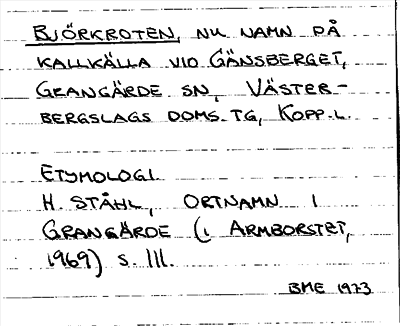 BJÖRKROTEN, NU NAMN PÅ
KALLKÄLLA VID GÄNSBERGET,
GRANGÄRDE SN, VÄSTER-
BERGSLAGS DOMS.TG, KOPP.L.
ETYMOLOGI.
H. STÅHL, ORTNAMN I
GRANGÄRDE (I ARMBORSTET,
1969) S. 111.
BME 1973